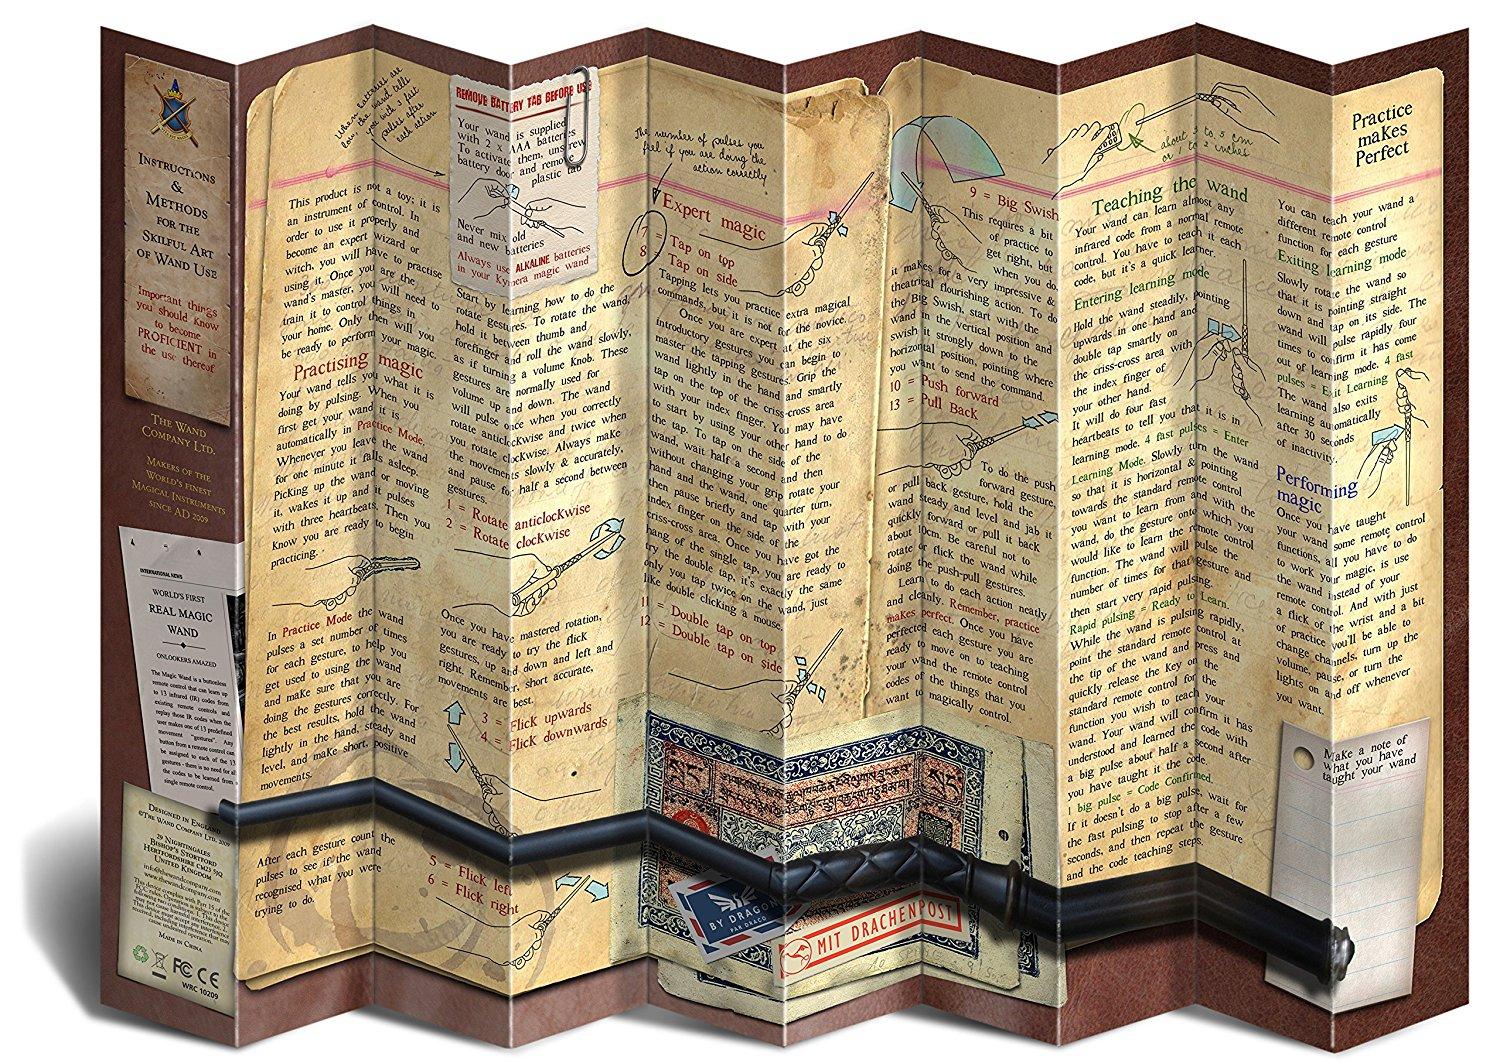 INSTRUCTIONS
&
METHODS
FOR THE
SKILFUL ART
OF WAND USE
Important things
you should know
to become
PROFICIENT in
the use thereof
THE WAND
COMPANY LTD.
MAKERS OF THE
WORLD'S FINEST
MAGICAL INSTRUMENTS
SINCE AD 2009
INTERNATIONAL NEWS
WORLD'S FIRST
REAL MAGIC
WAND
ONLOOKERS AMAZED
The Magic Wand is a buttonless
remote control that can learn up
to 13 infrared (IR) codes from
existing remote controls and
replay those IR codes when the
user makes one of 13 predefined
movement "gestures". Any
button from a remote control can
be assigned to each of the 13
gestures - there is no need for all
the codes to be learned from a
single remote control.
DESIGNED IN ENGLAND
©THE WAND COMPANY LTD. 2009
29 NIGHTINGALES
BISHOP'S STORTFORD
HERTFORDSHIRE CM23 5JQ
UNITED KINGDOM
info@thewandcompany.com
www.thewandcompany.com
This device complies with Part 15 of the
FCC rules.
MADE IN CHINA
FC CE
WRC 10209
When batteries are
low, the wand tells
you with 3 fast
pulses after
each action
This product is not a toy; it is
an instrument of control. In
order to use it properly and
become an expert wizard or
witch, you will have to practise
using it. Once you are the
wand's master, you will need to
train it to control things in
your home. Only then will you
be ready to perform your magic.
Practising magic
Your wand tells you what it is
doing by pulsing. When you
first get your wand it is
automatically in Practice Mode.
Whenever you leave the wand
for one minute it falls asleep.
Picking up the wand or moving
it, wakes it up and it pulses
with three heartbeats. Then you
know you are ready to begin
practicing.
In Practice Mode the wand
pulses a set number of times
for each gesture, to help you
get used to using the wand
and make sure that you are
doing the gestures correctly. For
the best results, hold the wand
lightly in the hand, steady and
level, and make short, positive
movements.
After each gesture count the
pulses to see if the wand
recognised what you were
trying to do.
REMOVE BATTERY TAB BEFORE USE
Your wand is supplied
with 2 x AAA batteries
To activate them, unscrew
battery door and remove
plastic tab
Never mix old
and new batteries
Always use ALKALINE batteries
in your Kymera magic wand
Start by learning how to do the
rotate gestures. To rotate the wand,
hold it between thumb and
forefinger and roll the wand slowly,
as if turning a volume knob. These
gestures are normally used for
volume up and down. The wand
will pulse once when you correctly
rotate anticlockwise and twice when
you rotate clockwise. Always make
the movements slowly & accurately,
and pause for half a second between
gestures.
1 = Rotate anticlockwise
2 = Rotate clockwise
Once you have mastered rotation,
you are ready to try the flick
gestures, up and down and left and
right. Remember, short accurate,
movements are best.
3 = Flick upwards
4 = Flick downwards
5 = Flick left
6 = Flick right
The number of pulses you
feel if you are doing the
action correctly
Expert magic
7 = Tap on top
8 = Tap on side
Tapping lets you practice extra magical
commands, but it is not for the novice.
Once you are expert at the six
introductory gestures you can begin to
master the tapping gestures. Grip the
wand lightly in the hand and smartly
tap on the top of the criss-cross area
with your index finger. You may have
to start by using your other hand to do
the tap. To tap on the side of the
wand, wait half a second and then
without changing your grip rotate your
hand and the wand, one quarter turn,
then pause briefly and tap with your
index finger on the side of the
criss-cross area. Once you have got the
hang of the single tap, you are ready to
try the double tap, it's exactly the same
only you tap twice on the wand, just
like double clicking a mouse.
11 = Double tap on top
12 = Double tap on side
BY DRAGON
PAR DRACO
MIT DRACHENPOST
9 = Big Swish
This requires a bit
of practice to
get right, but
when you do,
it makes for a very impressive &
theatrical flourishing action. To do
the Big Swish, start with the
wand in the vertical position and
swish it strongly down to the
horizontal position, pointing where
you want to send the command.
10 = Push forward
13 = Pull Back
To do the push
forward gesture,
or pull back gesture, hold the
wand steady and level and jab it
quickly forward or pull it back
about 10cm. Be careful not to
rotate or flick the wand while
doing the push-pull gestures.
Learn to do each action neatly
and cleanly. Remember, practice
makes perfect. Once you have
perfected each gesture you are
ready to move on to teaching
your wand the remote control
codes of the things that you
want to magically control.
about 3 to 5 cm
or 1 to 2 inches
Teaching the wand
Your wand can learn almost any
infrared code from a normal remote
control. You have to teach it each
code, but it's a quick learner.
Entering learning mode
Hold the wand steadily, pointing
upwards in one hand and
double tap smartly on
the criss-cross area with
the index finger of
your other hand.
It will do four fast
heartbeats to tell you that it is in
learning mode. 4 fast pulses = Enter
Learning Mode. Slowly turn the wand
so that it is horizontal & pointing
towards the standard remote control
you want to learn from and with the
wand, do the gesture onto which you
would like to learn the remote control
function. The wand will pulse the
number of times for that gesture and
then start very rapid pulsing.
Rapid pulsing = Ready to Learn.
While the wand is pulsing rapidly,
point the standard remote control at
the tip of the wand and press and
quickly release the key on the
standard remote control for the
function you wish to teach your
wand. Your wand will confirm it has
understood and learned the code with
a big pulse about half a second after
you have taught it the code.
1 big pulse = Code Confirmed.
If it doesn't do a big pulse, wait for
the fast pulsing to stop after a few
seconds, and then repeat the gesture
and the code teaching steps.
Practice
makes
Perfect
You can teach your wand a
different remote control
function for each gesture
Exiting learning mode
Slowly rotate the wand so
that it is pointing straight
down and tap on its side. The
wand will pulse rapidly four
times to confirm it has come
out of learning mode. 4 fast
pulses = Exit Learning
The Wand also exits
learning automatically
after 30 seconds
of inactivity.
Performing
magic
Once you have taught
your wand some remote control
functions, all you have to do
to work your magic, is use
the wand instead of your
remote control. And with just
a flick of the wrist and a bit
of practice, you'll be able to
change channels, turn up the
volume, pause, or turn the
lights on and off whenever
you want.
Make a note of
what you have
taught your wand